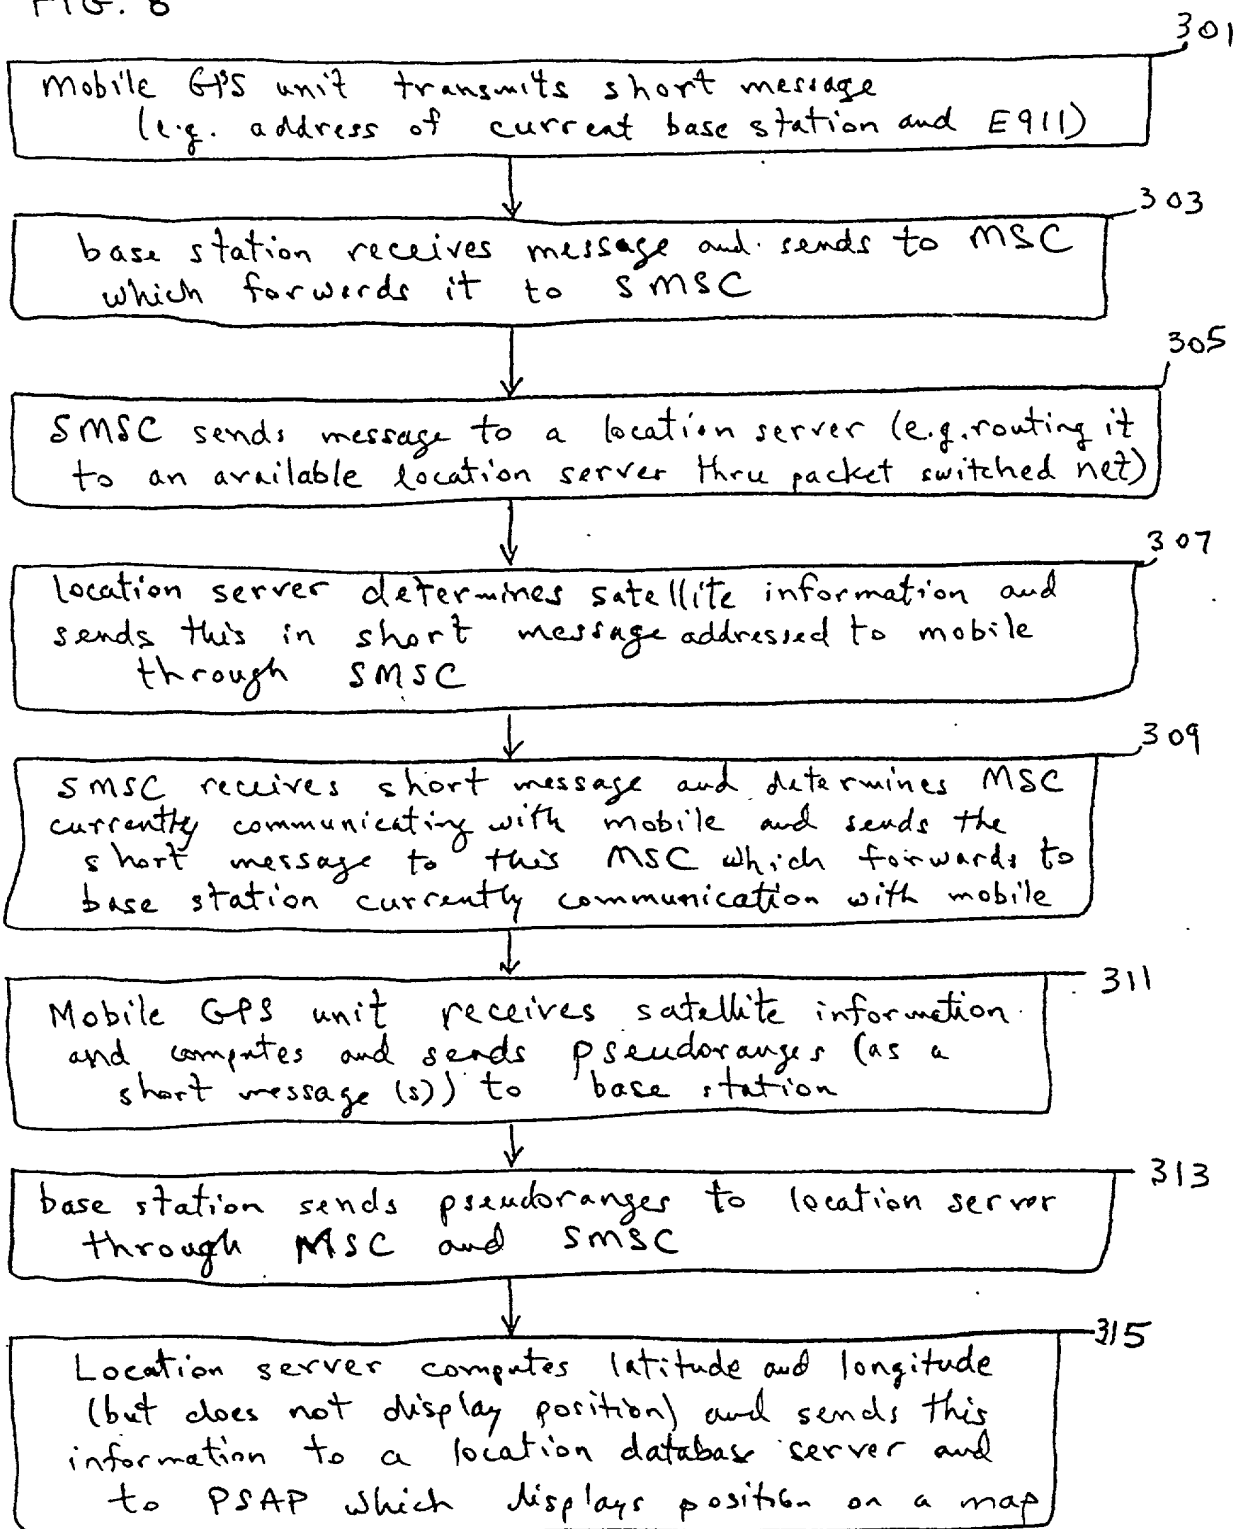 FIG. 8
301
Mobile GPS unit transmits short message
(e.g. address of current base station and E911)
303
base station receives message and sends to MSC
which forwards it to SMSC
305
SMSC sends message to a location server (e.g. routing it
to an available location server thru packet switched net)
307
location server determines satellite information and
sends this in short message addressed to mobile
through SMSC
309
SMSC receives short message and determines MSC
currently communicating with mobile and sends the
short message to this MSC which forwards to
base station currently communication with mobile
311
Mobile GPS unit receives satellite information
and computes and sends pseudoranges (as a
short message (s)) to base station
313
base station sends pseudoranges to location server
through MSC and SMSC
315
Location server computes latitude and longitude
(but does not display position) and sends this
information to a location database server and
to PSAP which displays position on a map